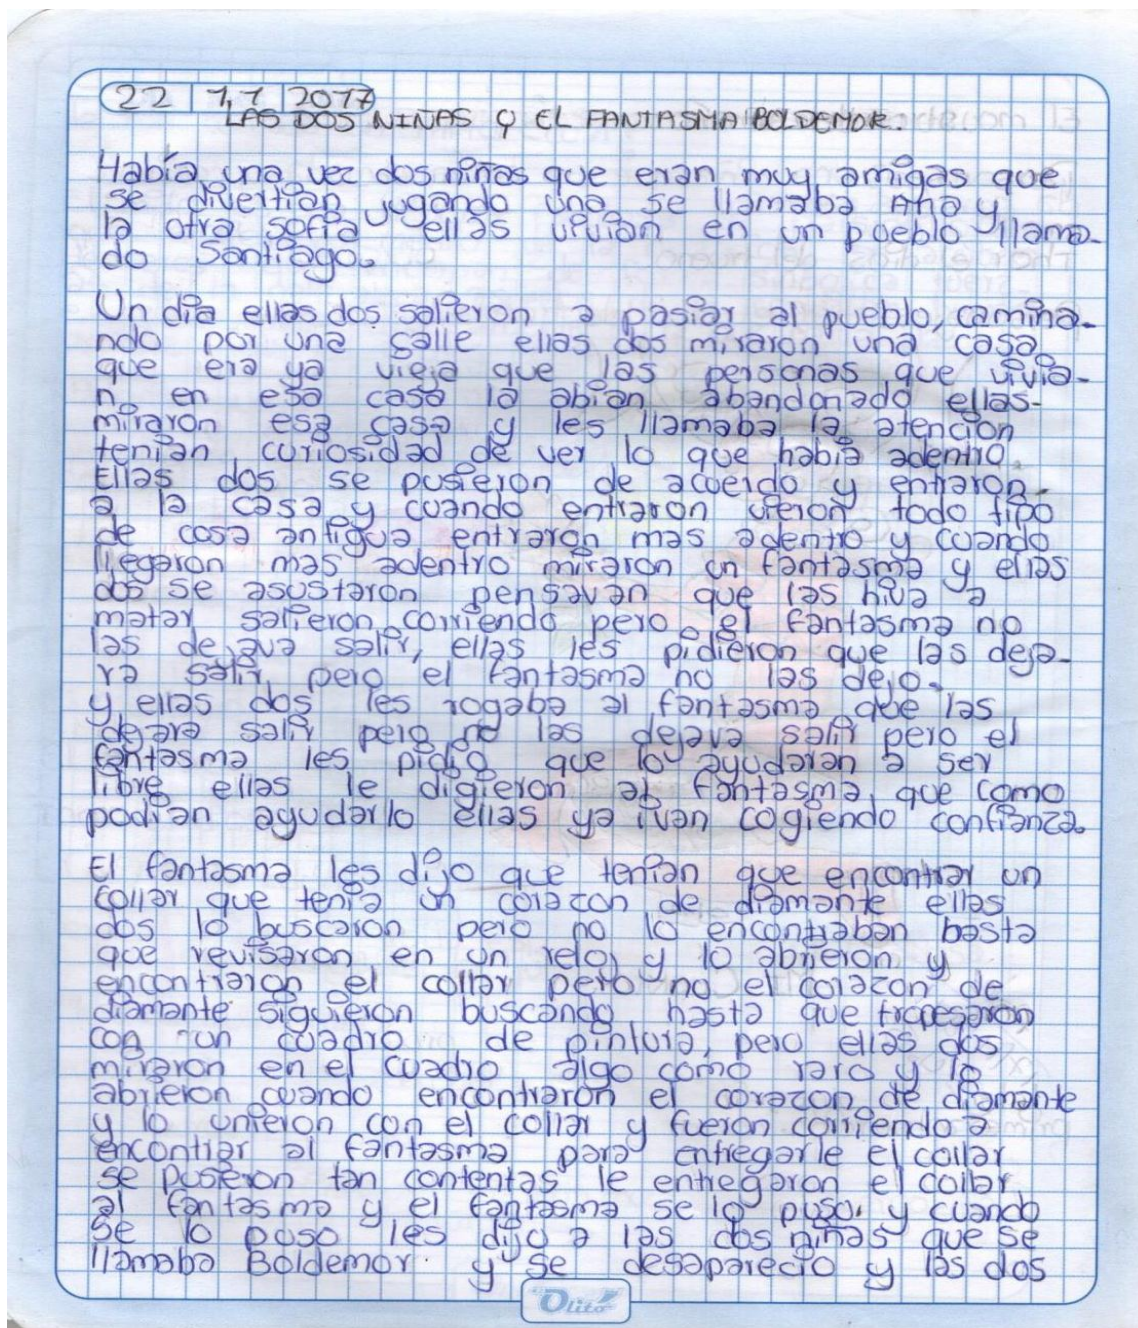 22 11 2017
LAS DOS NIÑAS Y EL FANTASMA BOLDEMOR.
Había una vez dos niñas que eran muy amigas que
se divertian jugando una se llamaba Ana y
la otra sofia ellas vivian en un pueblo llama-
do Santiago.
Un dia ellas dos salieron a pasiar al pueblo, camina-
ndo por una calle ellas dos miraron una casa
que era ya vieja que las personas que vivia-
n en esa casa la abian abandonado ellas
miraron esa casa y les llamaba la atencion
tenian curiosidad de ver lo que habia adentro.
Ellas dos se pusieron de acuerdo y entraron
a la casa y cuando entraron vieron todo tipo
de cosa antigua entraron mas adentro y cuando
llegaron mas adentro miraron un fantasma y ellas
dos se asustaron pensavan que las hiva a
matar salieron corriendo pero el fantasma no
las dejava salir, ellas les pidieron que las deja-
ra salir pero el fantasma no las dejo.
y ellas dos les rogaba al fantasma que las
dejara salir pero no las dejava salir pero el
fantasma les pidio que lo ayudaran a ser
libre ellas le digieron al fantasma que como
podian ayudarlo ellas ya ivan cogiendo confianza.
El fantasma les dijo que tenian que encontrar un
collar que tenia un corazon de diamante ellas
dos lo buscaron pero no lo encontraban basta
que revisaron en un reloj y lo abrieron y
encontraron el collar pero no el corazon de
diamante siguieron buscando hasta que tropesaron
con un cuadro de pintura, pero ellas dos
miraron en el cuadro algo como raro y lo
abrieron cuando encontraron el corazon de diamante
y lo unieron con el collar y fueron corriendo a
encontrar al fantasma para entregarle el collar
se pusieron tan contentas le entregaron el collar
al fantasma y el fantasma se lo puso. y cuando
se lo puso les dijo a las dos niñas que se
llamaba Boldemor. y se desaparecio y las dos
Olito